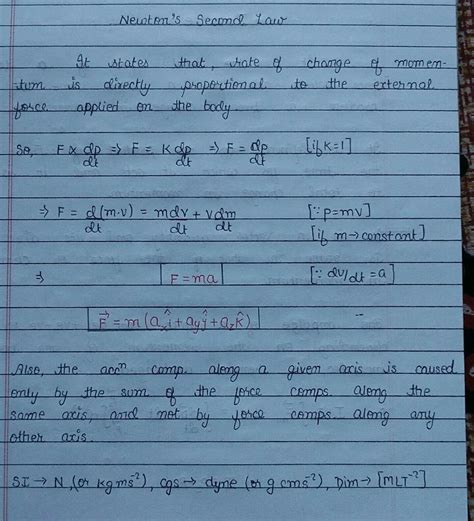 Newton's Second Law
It states that, rate of change of momen-
tum is directly proportional to the external
force applied on the body.
So, F ∝ dp/dt ⇒ F = K dp/dt ⇒ F = dp/dt [if K=1]
⇒ F = d(m.v)/dt = mdv/dt + vdm/dt [∵ p=mv]
[if m→constant]
⇒ F=ma [∵ dv/dt = a]
F⃗ = m(aₓî + a_yĵ + a_zk̂)
Also, the accⁿ comp. along a given axis is caused
only by the sum of the force comps. along the
same axis, and not by force comps. along any
other axis.
SI → N, (or kgms⁻²), cgs → dyne (or g cms⁻²), Dim → [MLT⁻²]